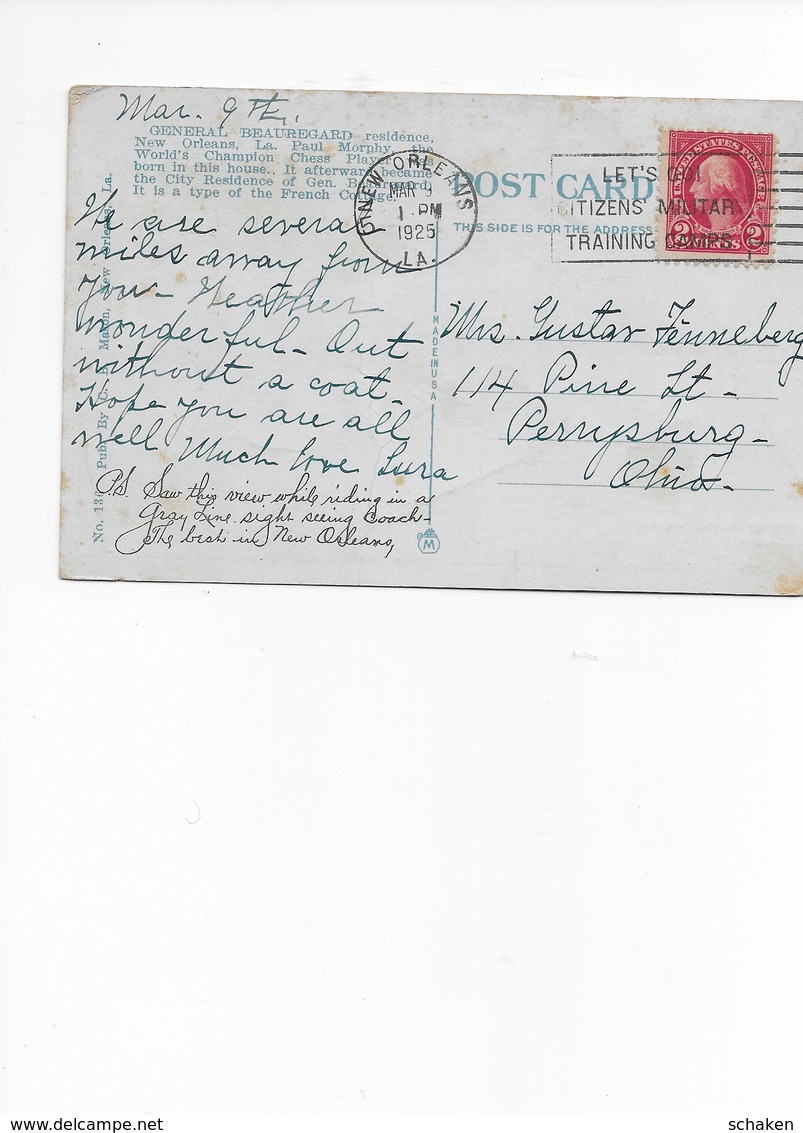 Mar. 9th.
GENERAL BEAUREGARD residence,
New Orleans, La. Paul Morphy, the
World's Champion Chess Player
born in this house.. It afterward became
the City Residence of Gen.
It is a type of the French
We are several
miles away from
you - Weather
wonderful - Out
without a coat -
Hope you are all
well Much love
P.S. Saw this view while riding in a
Gray Line sight seeing Coach -
The best in New Orleans,
Pub. By C. B. Mason, New Orleans, La.
No.
MADE IN USA
M
NEW ORLEANS
MAR 9
1 PM
1925
LA.
POST CARD
THIS SIDE IS FOR THE ADDRESS
LET'S GO!
CITIZENS' MILITARY
TRAINING CAMPS
UNITED STATES POSTAGE
2 CENTS 2
Mrs. Gustav Fenneberg
114 Pine St -
Perrysburg -
Ohio -
schaken